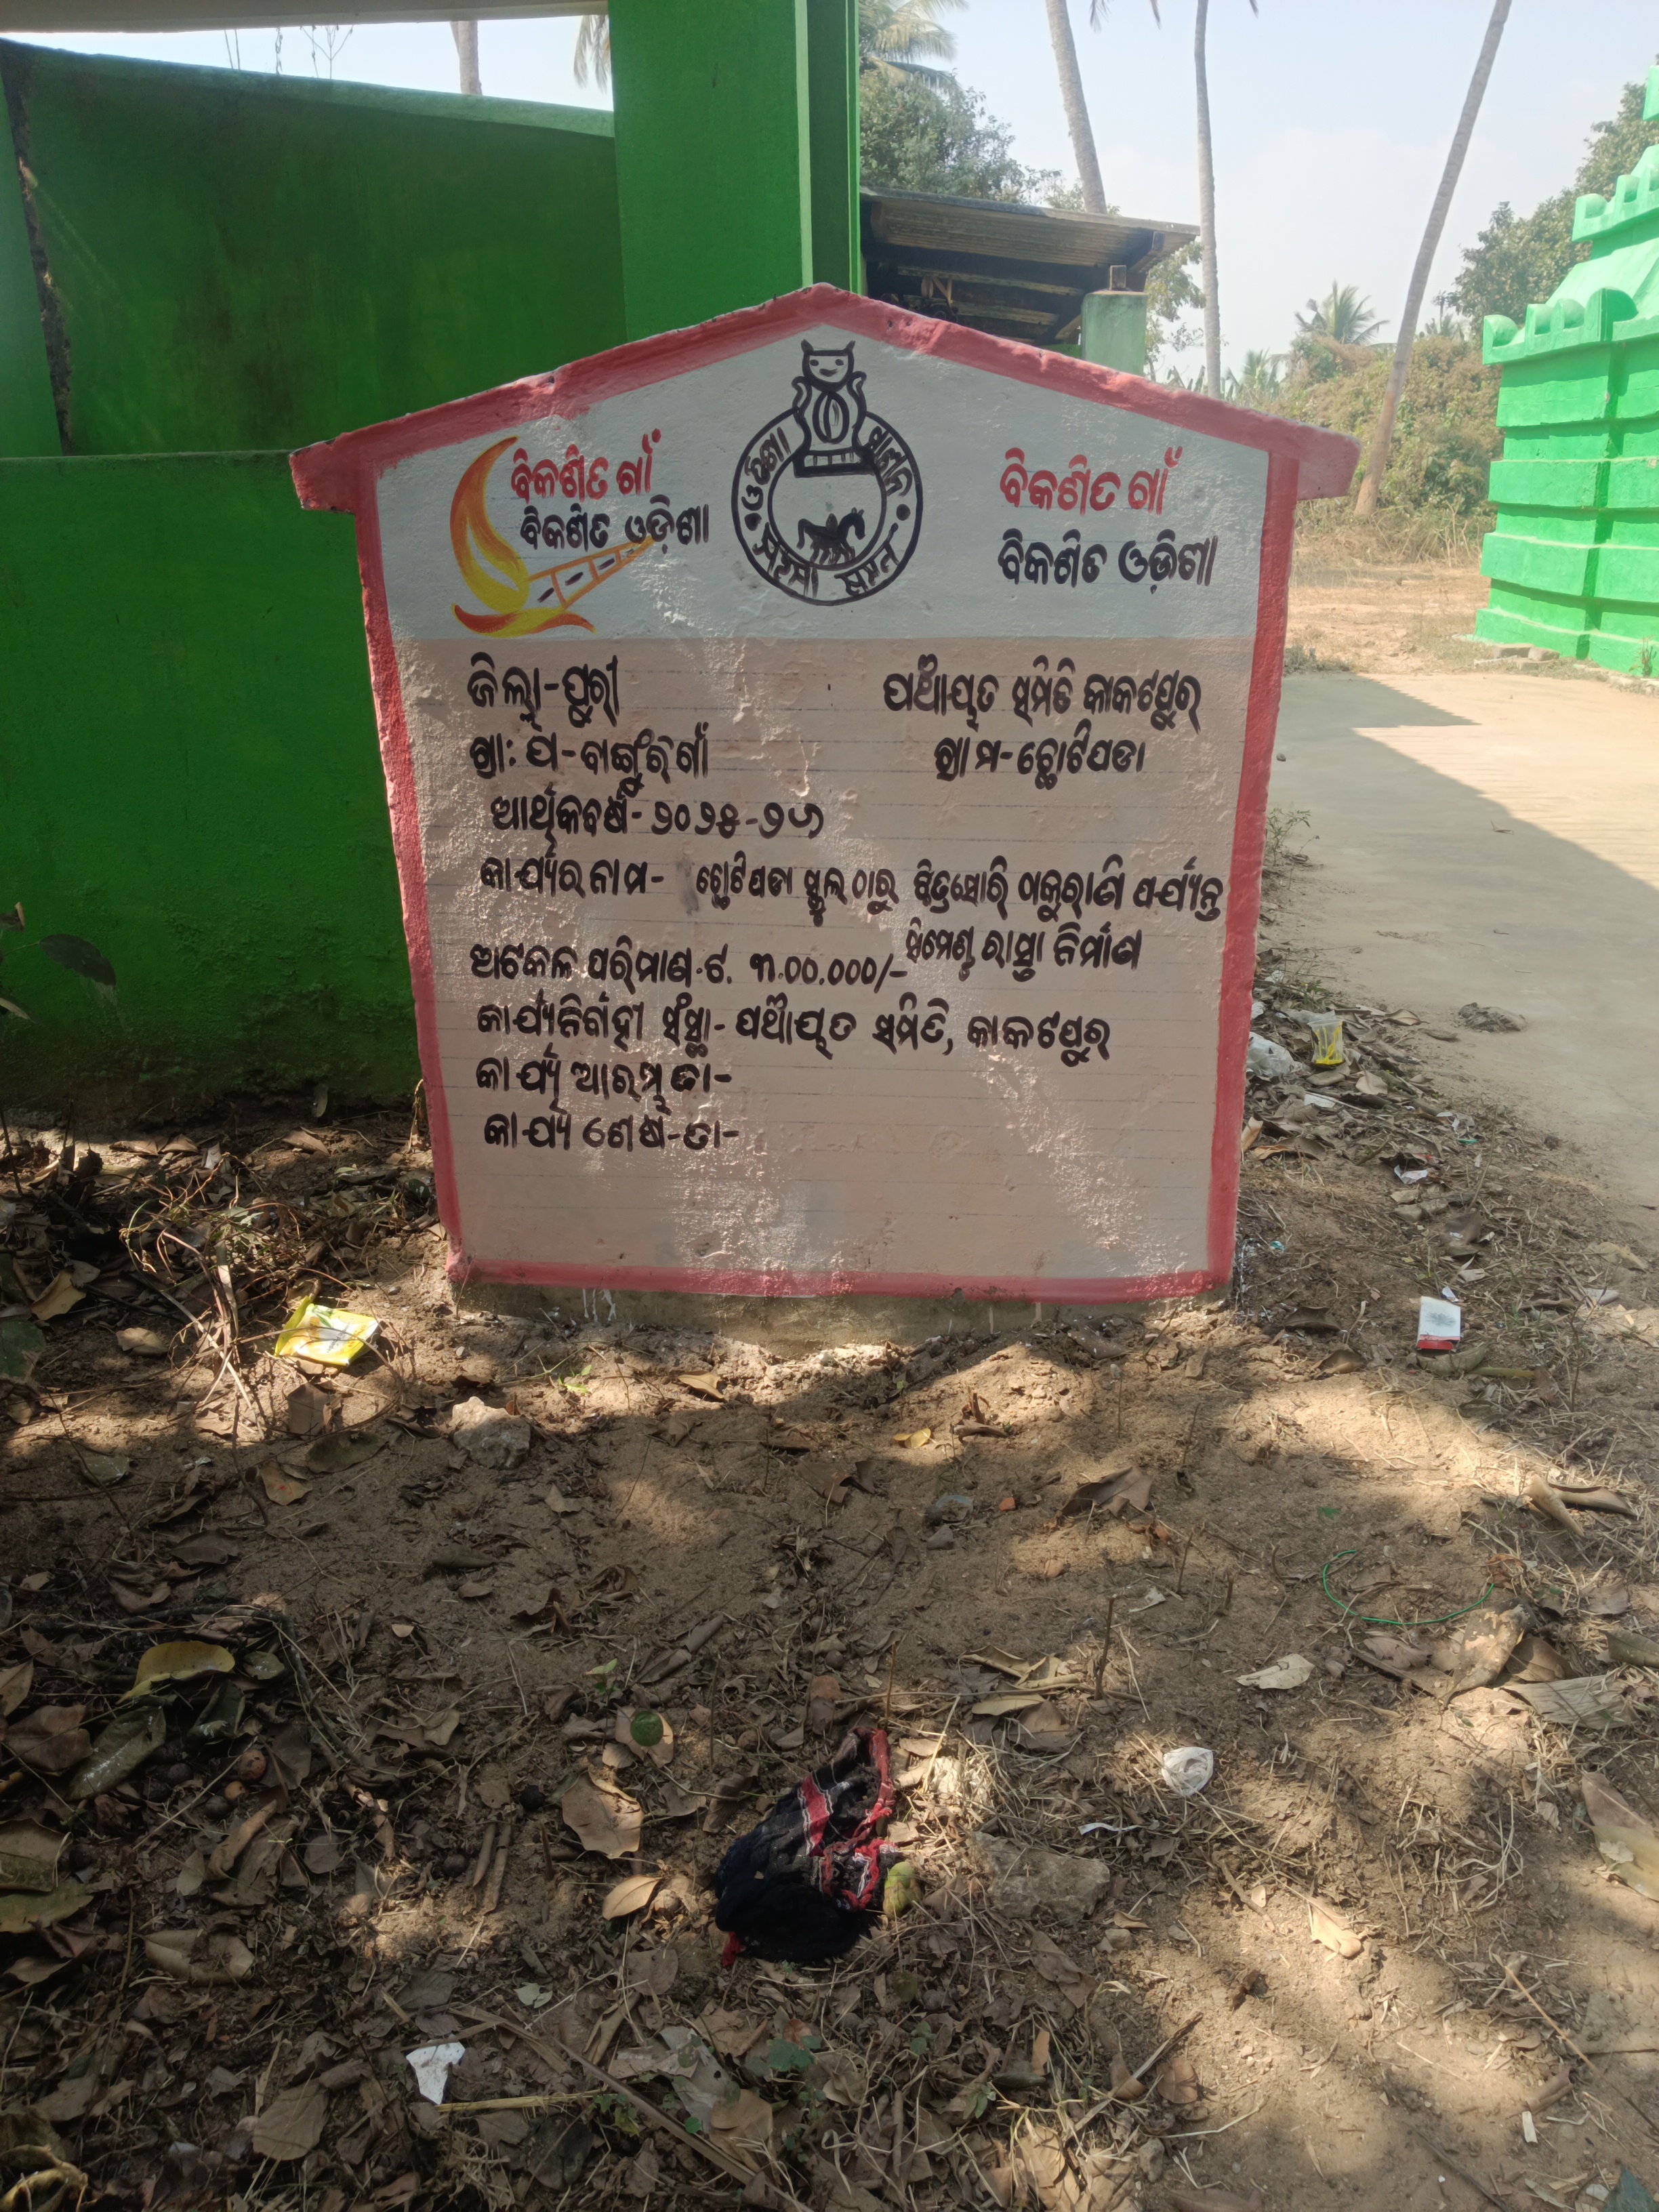 ବିକଶିତ ଗାଁ
ବିକଶିତ ଓଡ଼ିଶା
ଓଡ଼ିଶା ଶାସନ
ବିକଶିତ ଗାଁ
ବିକଶିତ ଓଡ଼ିଶା
ଜିଲ୍ଲା-ପୁରୀ
ପଞ୍ଚାୟତ ସମିତି କାକଟପୁର୍
ଗ୍ରା: ପ-ବାଙ୍ଗୁରିଗାଁ
ଗ୍ରାମ-ଛୋଟିପଡା
ଆର୍ଥିକବର୍ଷ-୨୦୨୫-୨୬
କାର୍ଯ୍ୟର ନାମ- ଛୋଟିପଡା ସ୍କୁଲ ଠାରୁ ଠାକୁରାଣି ପର୍ଯ୍ୟନ୍ତ
ସିମେଣ୍ଟ ରାସ୍ତା ନିର୍ମାଣ
ଅଟକଳ ପରିମାଣ.ଟ. ୩.୦୦.୦୦୦/-
କାର୍ଯ୍ୟନିର୍ବାହୀ ସଂସ୍ଥା- ପଞ୍ଚାୟତ ସମିତି, କାକଟପୁର୍
କାର୍ଯ୍ୟ ଆରମ୍ଭ ତା-
କାର୍ଯ୍ୟ ଶେଷ-ତା-